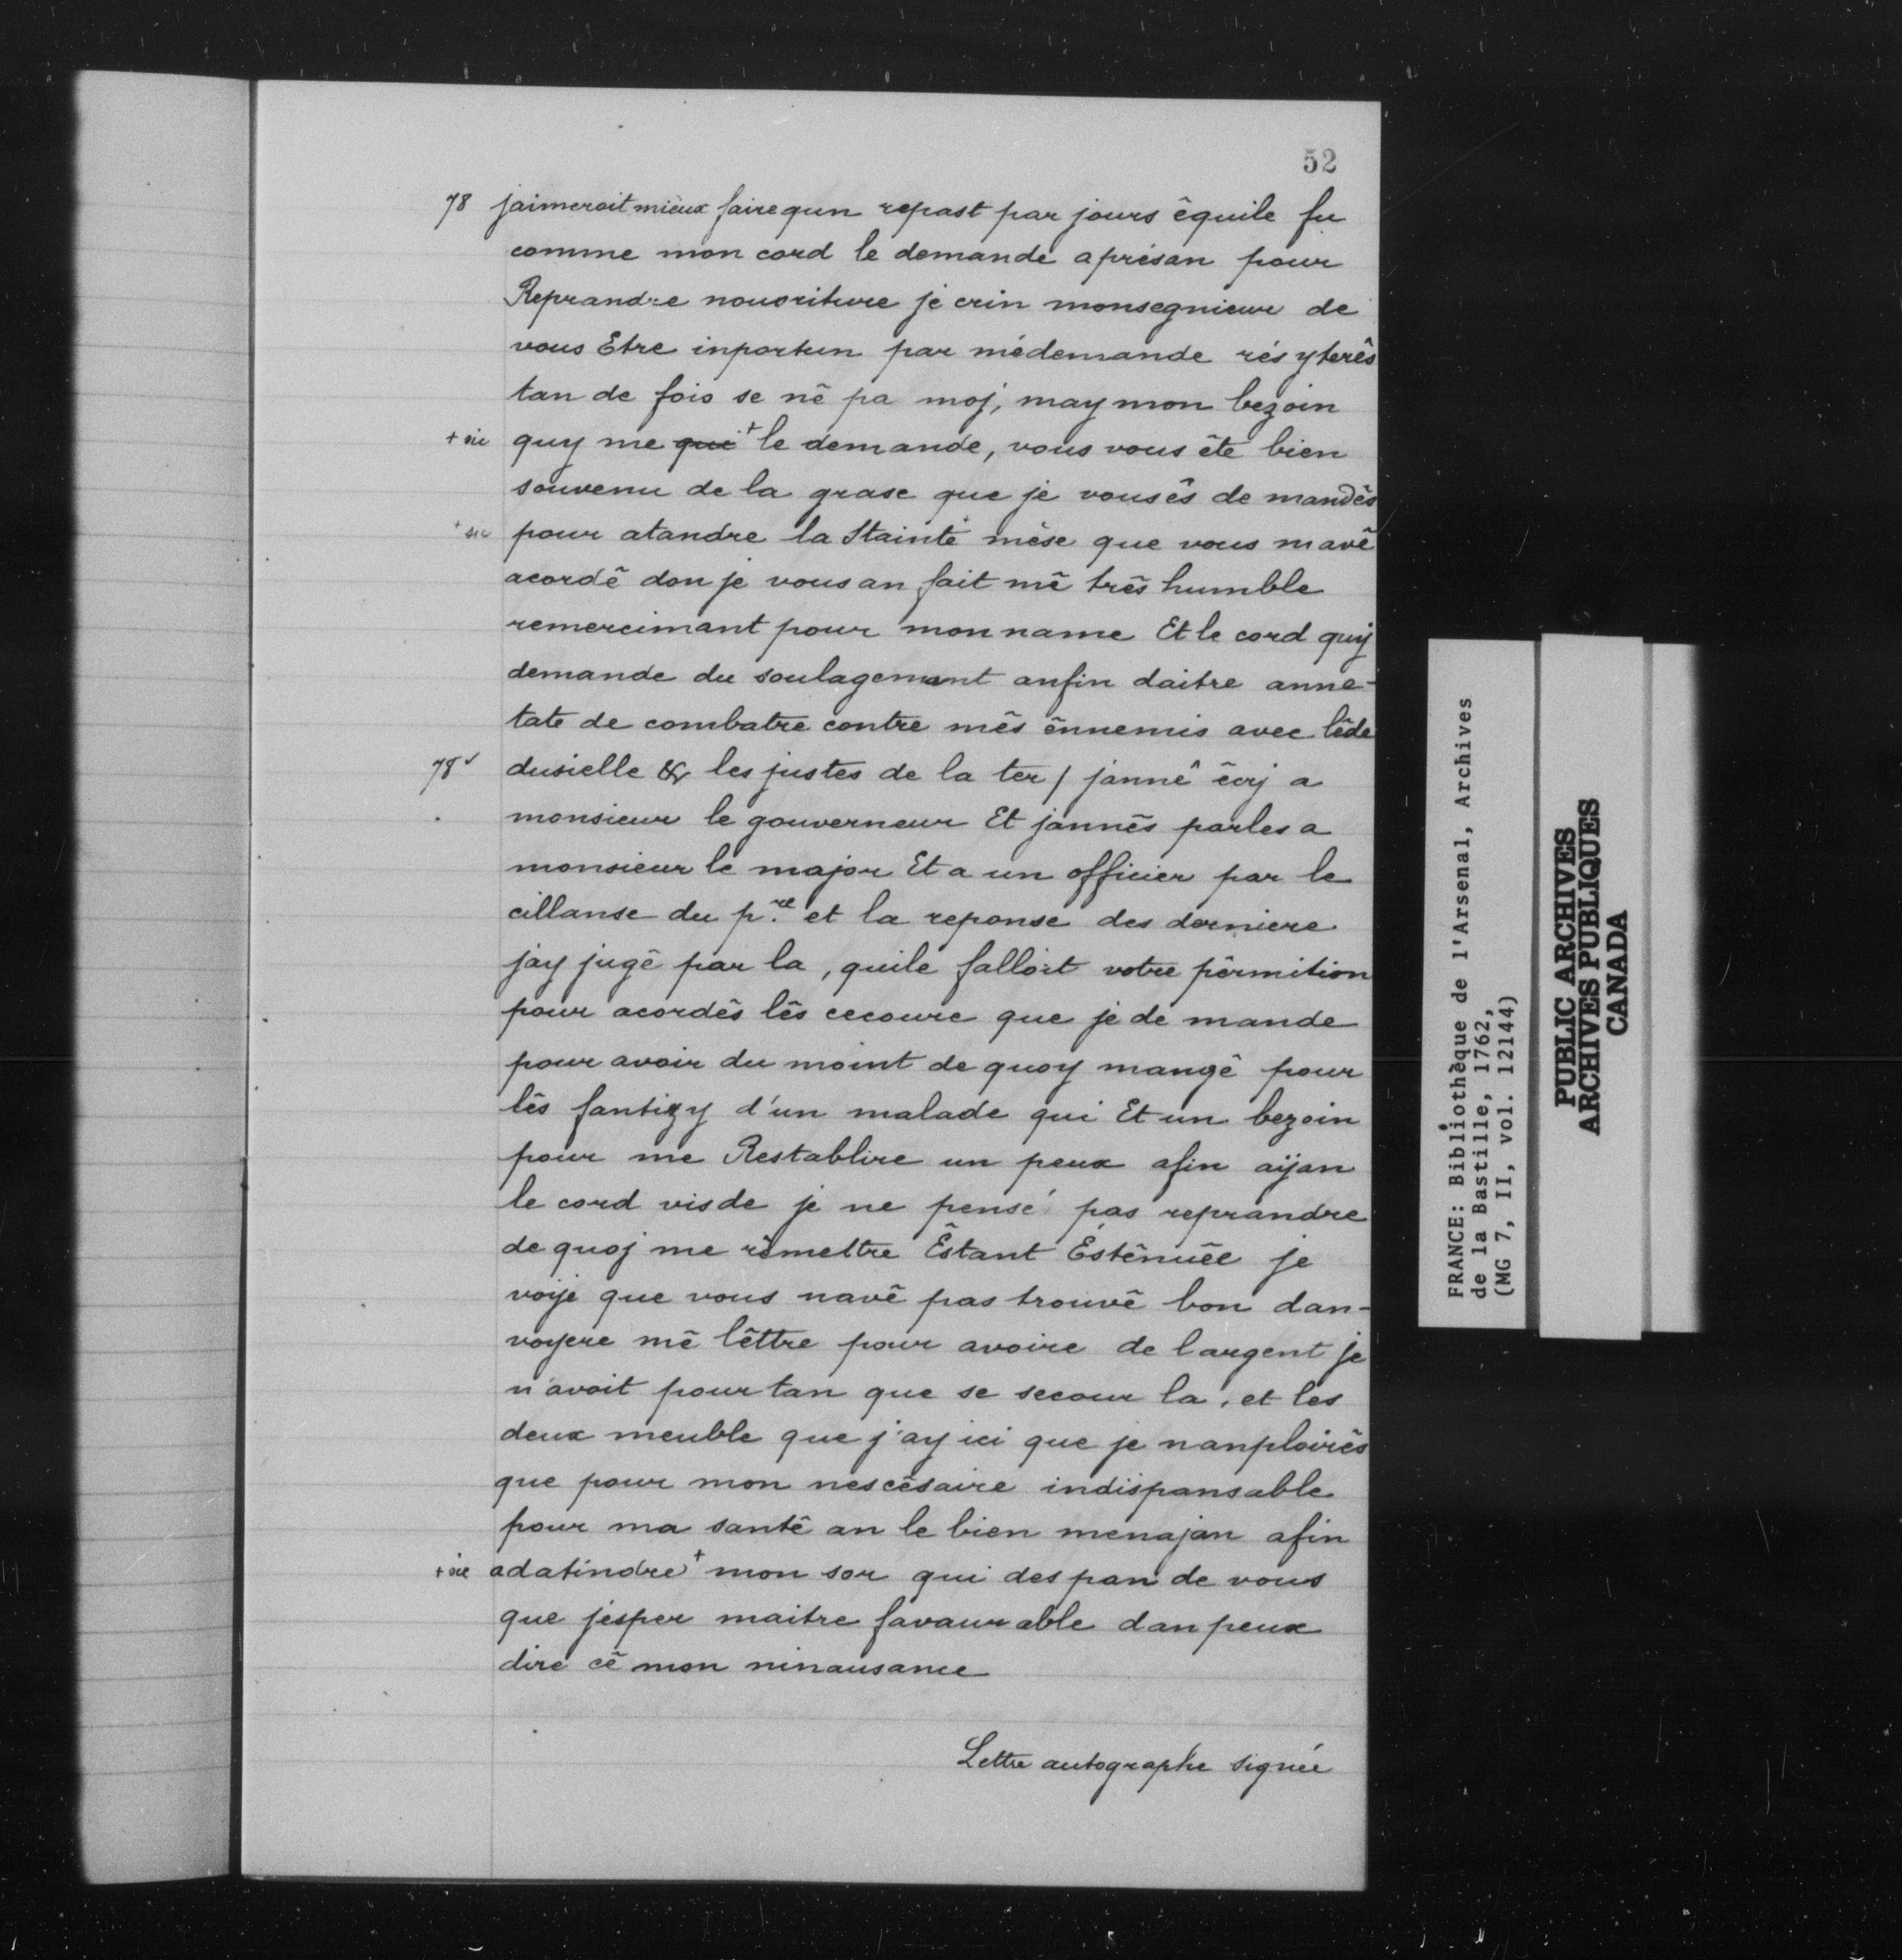 52
78 jaimeroit mieux faire qun repast par jours êquile fu
comme mon cord le demande aprésan pour
Reprandre nouoriture je crin monsegnieur de
vous Etre inportun par médemande rés yterês
tan de fois se nê pa moj, may mon bezoin
+ sic quy me qui + le demande, vous vous ête bien
souvenu de la grase que je vousês de mandês
+ sic pour atandre la Stainte + mése que vous mavê
acordê don je vous an fait mê três humble
remercimant pour mon name Et le cord quij
demande du soulagemant anfin daitre anne-
tate de combatre contre mês ênnemis avec lêde
78v dusielle & les justes de la ter / jannê êcrj a
monsieur le gouverneur Et jannês parles a
monsieur le major Et a un officier par le
cillanse du p.re et la reponse des derniere
jay jugê par la, quile falloit votre pêrmition
pour acordês lês cecoure que je de mande
pour avoir du moint de quoy mangê pour
lês fantizy d'un malade qui Et un bezoin
pour me Restablire un peux afin aijan
le cord visde je ne pensé pas reprandre
de quoj me rêmettre Êstant Éstênuêe je
voije que vous navê pas trouvê bon dan-
voyere mê lêttre pour avoire de largent je
n'avoit pourtan que se secour la, et les
deux meuble que j'ay ici que je nanploirês
que pour mon nescêsaire indispansable
pour ma santê an le bien menajan afin
+ sic adatindre + mon sor qui des pan de vous
que jesper maitre favaurable dan peux
dire cê mon ninausance
Lettre autographe signée
FRANCE: Bibliothèque de l'Arsenal, Archives
de la Bastille, 1762,
(MG 7, II, vol. 12144)
PUBLIC ARCHIVES
ARCHIVES PUBLIQUES
CANADA